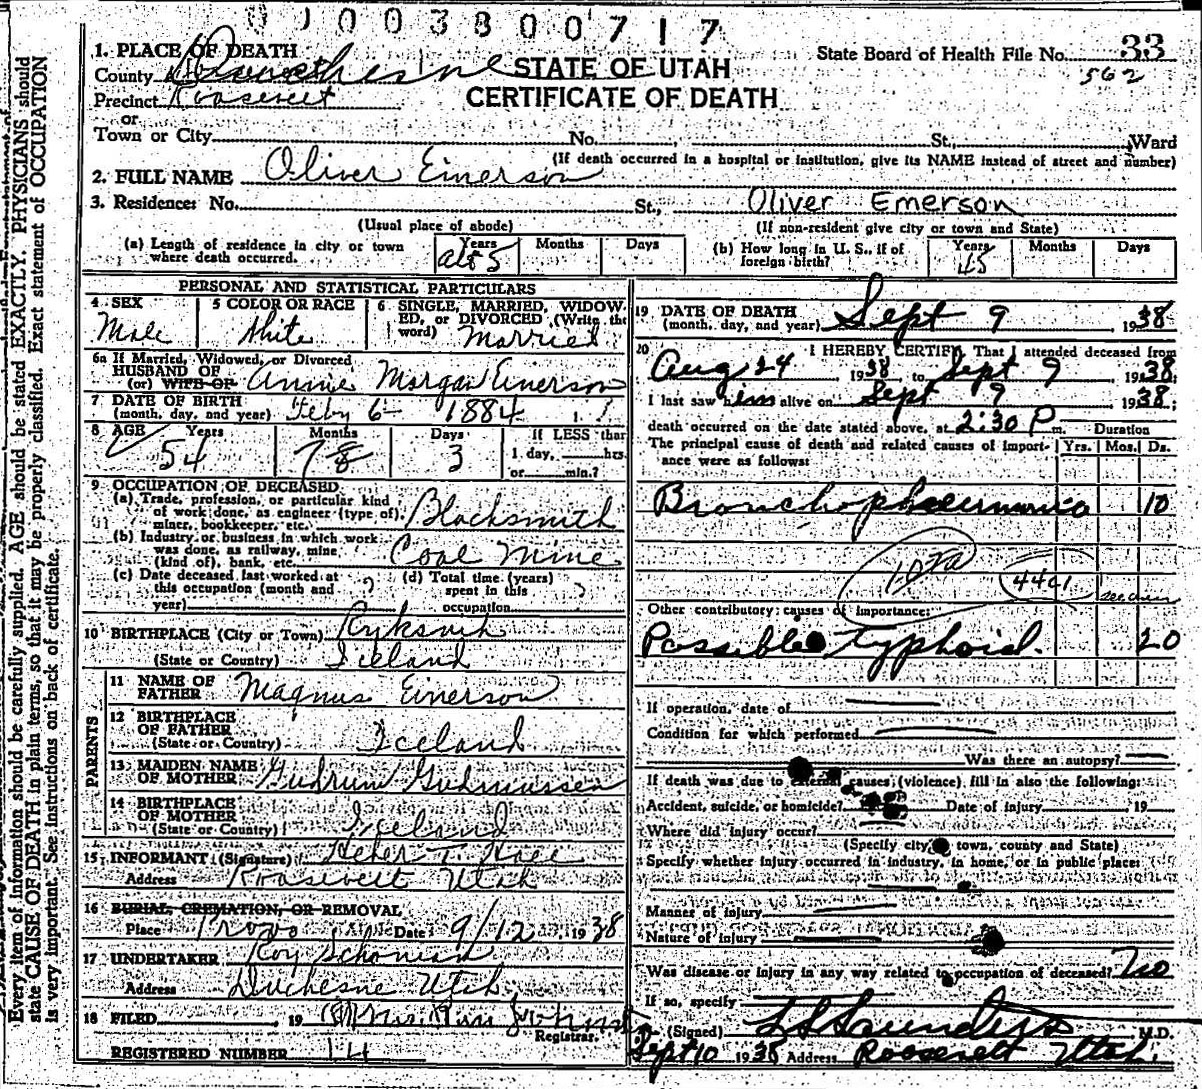 0 1 0 0 3 8 0 0 7 1 7
1. PLACE OF DEATH
State Board of Health File No. 33
County Duchesne
STATE OF UTAH
562
Precinct Roosevelt
CERTIFICATE OF DEATH
or
Town or City No. St., Ward
(If death occurred in a hospital or institution, give its NAME instead of street and number)
2. FULL NAME Oliver Einerson
3. Residence: No. St., Oliver Emerson
(Usual place of abode) (If non-resident give city or town and State)
(a) Length of residence in city or town where death occurred. Years Months Days
(b) How long in U. S., if of foreign birth? Years 45 Months Days
PERSONAL AND STATISTICAL PARTICULARS
4 SEX Male
5 COLOR OR RACE White
6 SINGLE, MARRIED, WIDOWED, or DIVORCED (Write the word) Married
6a If Married, Widowed, or Divorced
HUSBAND OF
(or) WIFE OF Annie Morgan Einerson
7 DATE OF BIRTH
(month, day, and year) Feby 6 1884
8 AGE Years 54 Months 7 8 Days 3
If LESS than
1 day, hrs.
or min.?
9 OCCUPATION OF DECEASED
(a) Trade, profession, or particular kind
of work done, as engineer (type of),
miner, bookkeeper, etc. Blacksmith
(b) Industry or business in which work
was done, as railway, mine
(kind of), bank, etc. Coal Mine
(c) Date deceased last worked at
this occupation (month and
year) ?
(d) Total time (years)
spent in this
occupation ?
10 BIRTHPLACE (City or Town)
(State or Country) Iceland
PARENTS
11 NAME OF
FATHER Magnus Einerson
12 BIRTHPLACE
OF FATHER
(State or Country) Iceland
13 MAIDEN NAME
OF MOTHER Gudrun Gudmussen
14 BIRTHPLACE
OF MOTHER
(State or Country) Iceland
15 INFORMANT (Signature) Heber T. Hall
Address Roosevelt Utah
16 BURIAL, CREMATION, OR REMOVAL
Place Provo Date 9/12 1938
17 UNDERTAKER Roy Schonian
Address Duchesne Utah
18 FILED , 19 Mrs.
Registrar.
REGISTERED NUMBER 14
19 DATE OF DEATH
(month, day, and year) Sept 9 1938
20 I HEREBY CERTIFY, That I attended deceased from
Aug 24 1938 to Sept 9 1938
I last saw him alive on Sept 9 1938;
death occurred on the date stated above, at 2:30 P m. Duration
The principal cause of death and related causes of importance were as follows: Yrs. Mos. Ds.
Bronchopneumonia 10
107a
Other contributory causes of importance:
Possible typhoid. 20
If operation, date of
Condition for which performed
Was there an autopsy?
If death was due to external causes (violence) fill in also the following:
Accident, suicide, or homicide? Date of injury 19
Where did injury occur?
(Specify city, town, county and State)
Specify whether injury occurred in industry, in home, or in public place:
Manner of injury
Nature of injury
Was disease or injury in any way related to occupation of deceased? No
If so, specify
(Signed) M.D.
Sept 10 1938 Address Roosevelt Utah.
Every item of information should be carefully supplied. AGE should be stated EXACTLY. PHYSICIANS should
state CAUSE OF DEATH in plain terms, so that it may be properly classified. Exact statement of OCCUPATION
is very important. See instructions on back of certificate.